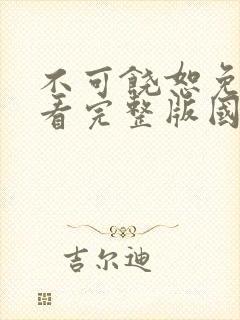 不可饶恕免
看完整版国
吉尔迪